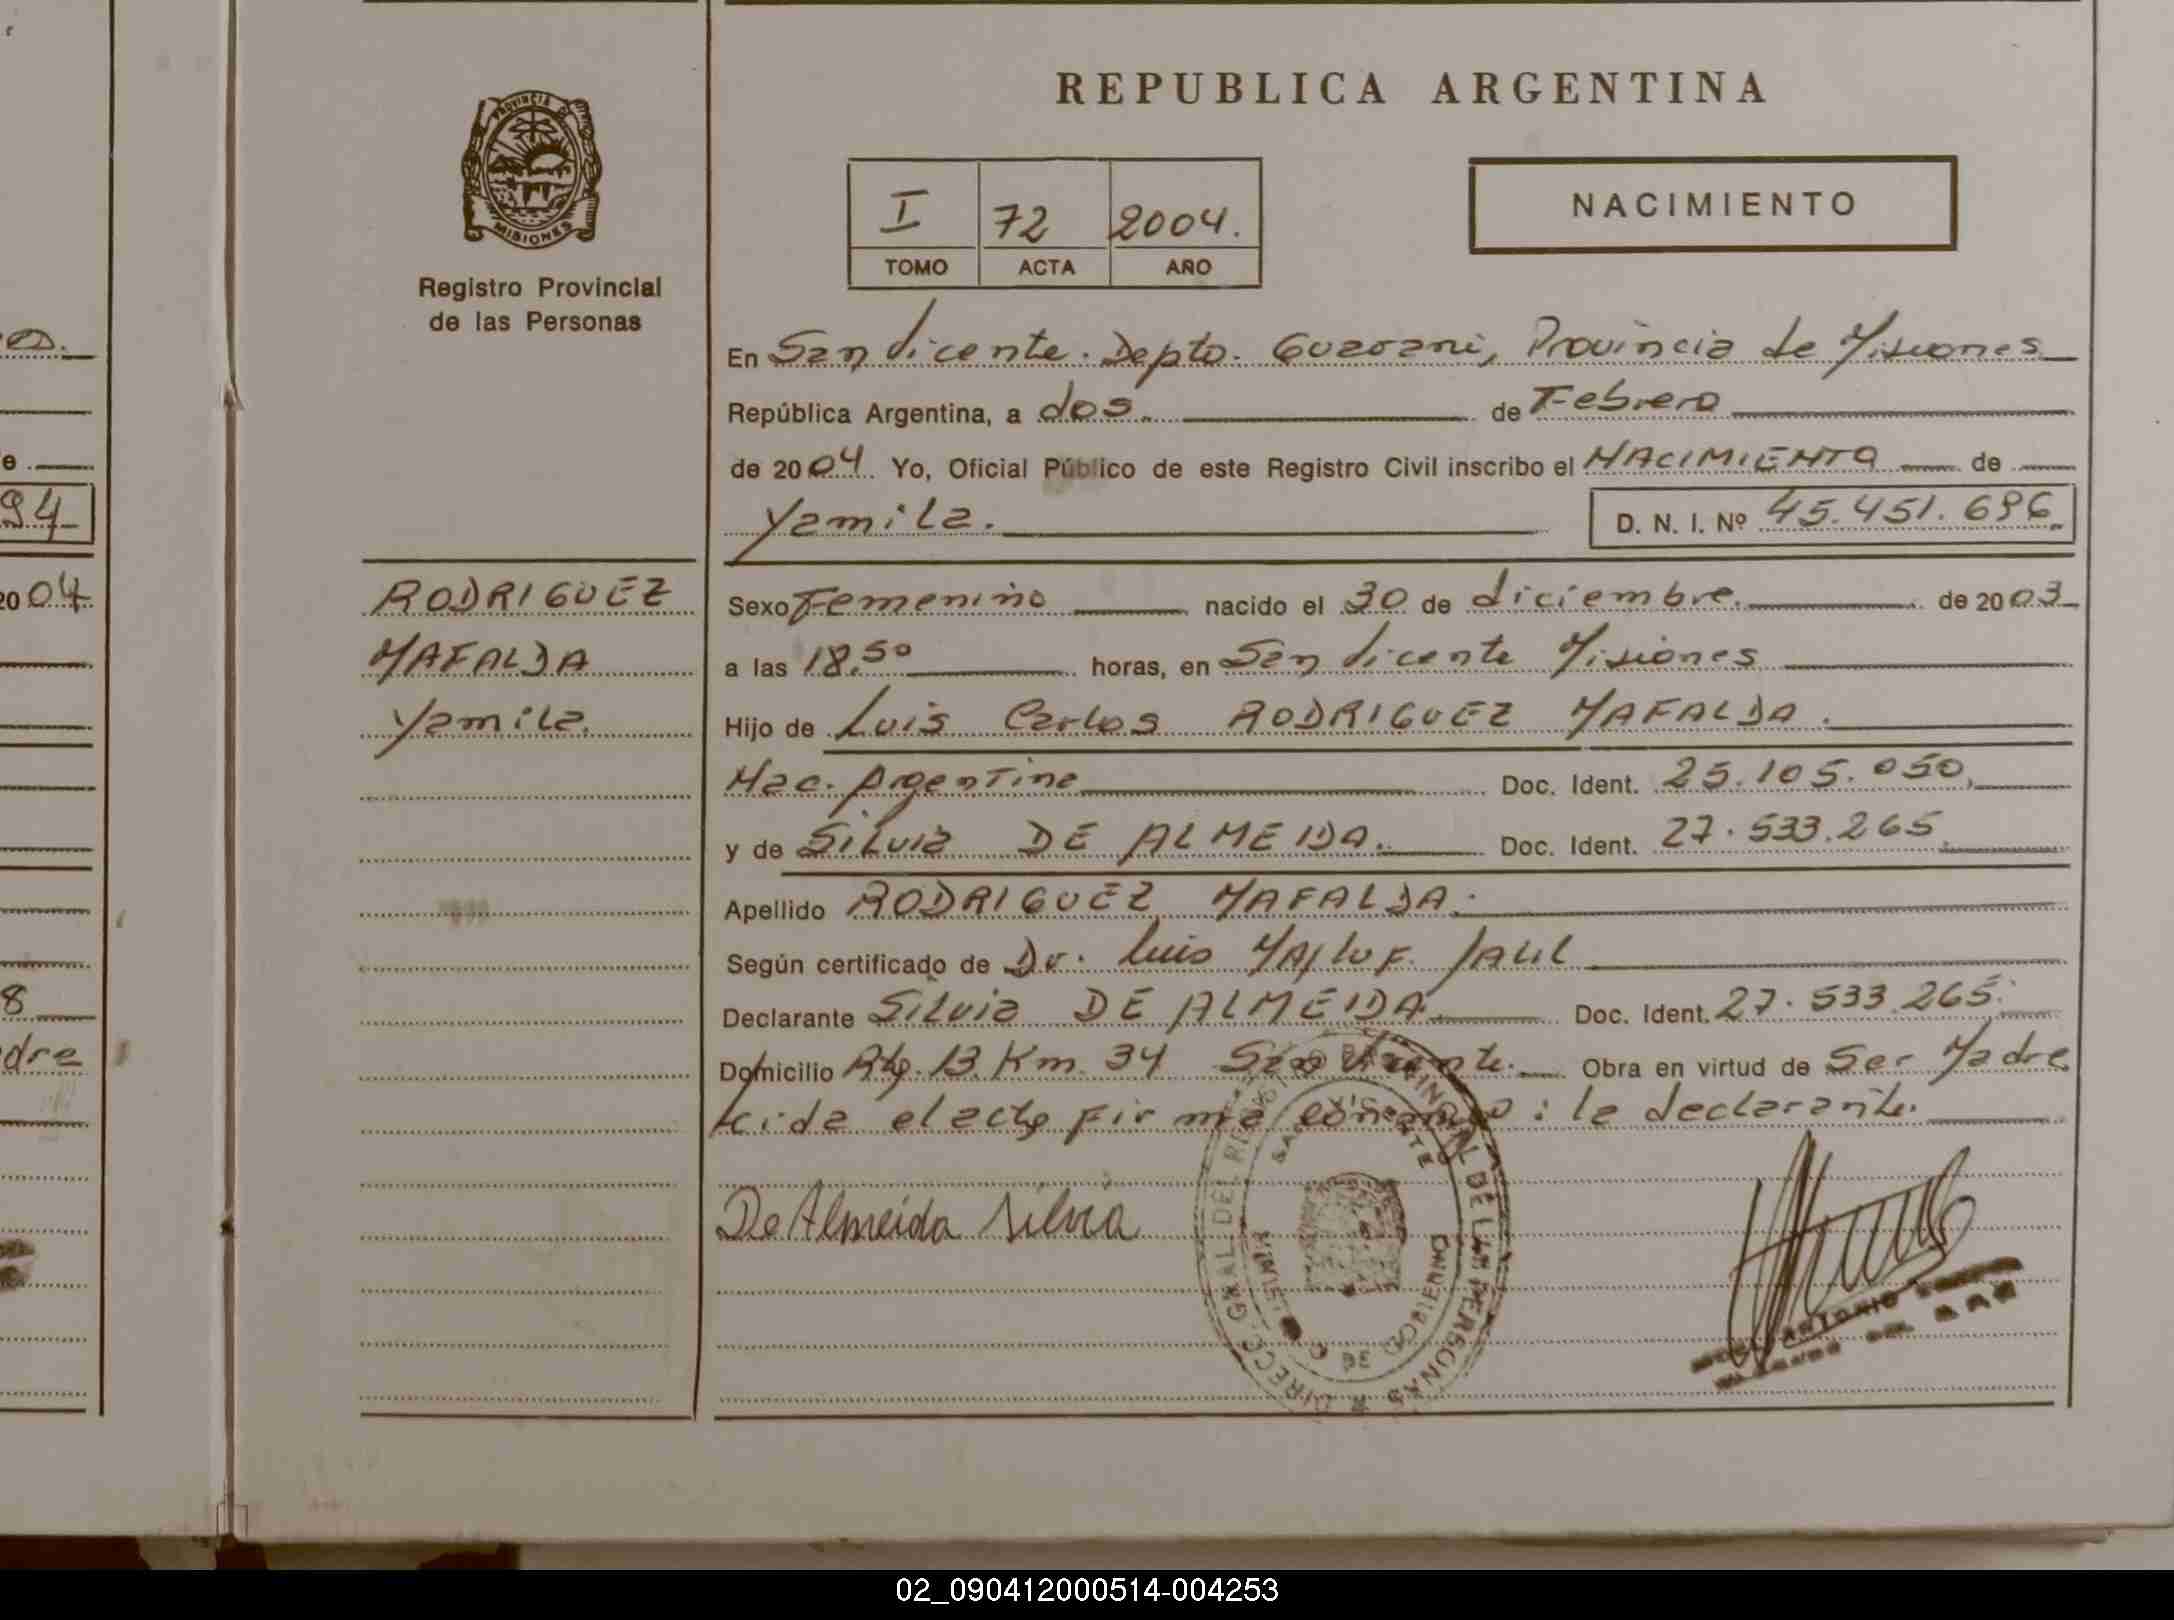 PROVINCIA DE
MISIONES
Registro Provincial
de las Personas
RODRIGUEZ
MAFALDA
Yamila.
REPUBLICA ARGENTINA
I 72 2004.
TOMO ACTA AÑO
NACIMIENTO
En San Vicente. Depto. Guarani, Provincia de Misiones
República Argentina, a dos. de Febrero
de 2004. Yo, Oficial Público de este Registro Civil inscribo el NACIMIENTO de
Yamila. D. N. I. Nº 45.451.696
Sexo Femenino nacido el 30 de diciembre. de 2003
a las 18.50 horas, en San Vicente Misiones
Hijo de Luis Carlos RODRIGUEZ MAFALDA.
Nac. Argentina Doc. Ident. 25.105.050,
y de Silvia DE ALMEIDA. Doc. Ident. 27.533.265.
Apellido RODRIGUEZ MAFALDA.
Según certificado de Dr. Luis Jalil
Declarante Silvia DE ALMEIDA. Doc. Ident. 27.533.265.
Domicilio Rta. 13. Km. 34 San Vicente. Obra en virtud de Ser Madre
Leida el acta firma conmigo: la declarante.
De Almeida Silvia
DIRECC. GRAL. DEL REG. PROVINCIAL DE LAS PERSONAS
SAN VICENTE
DE GOBIERNO
ANTONIO
94
2004
8
02_090412000514-004253